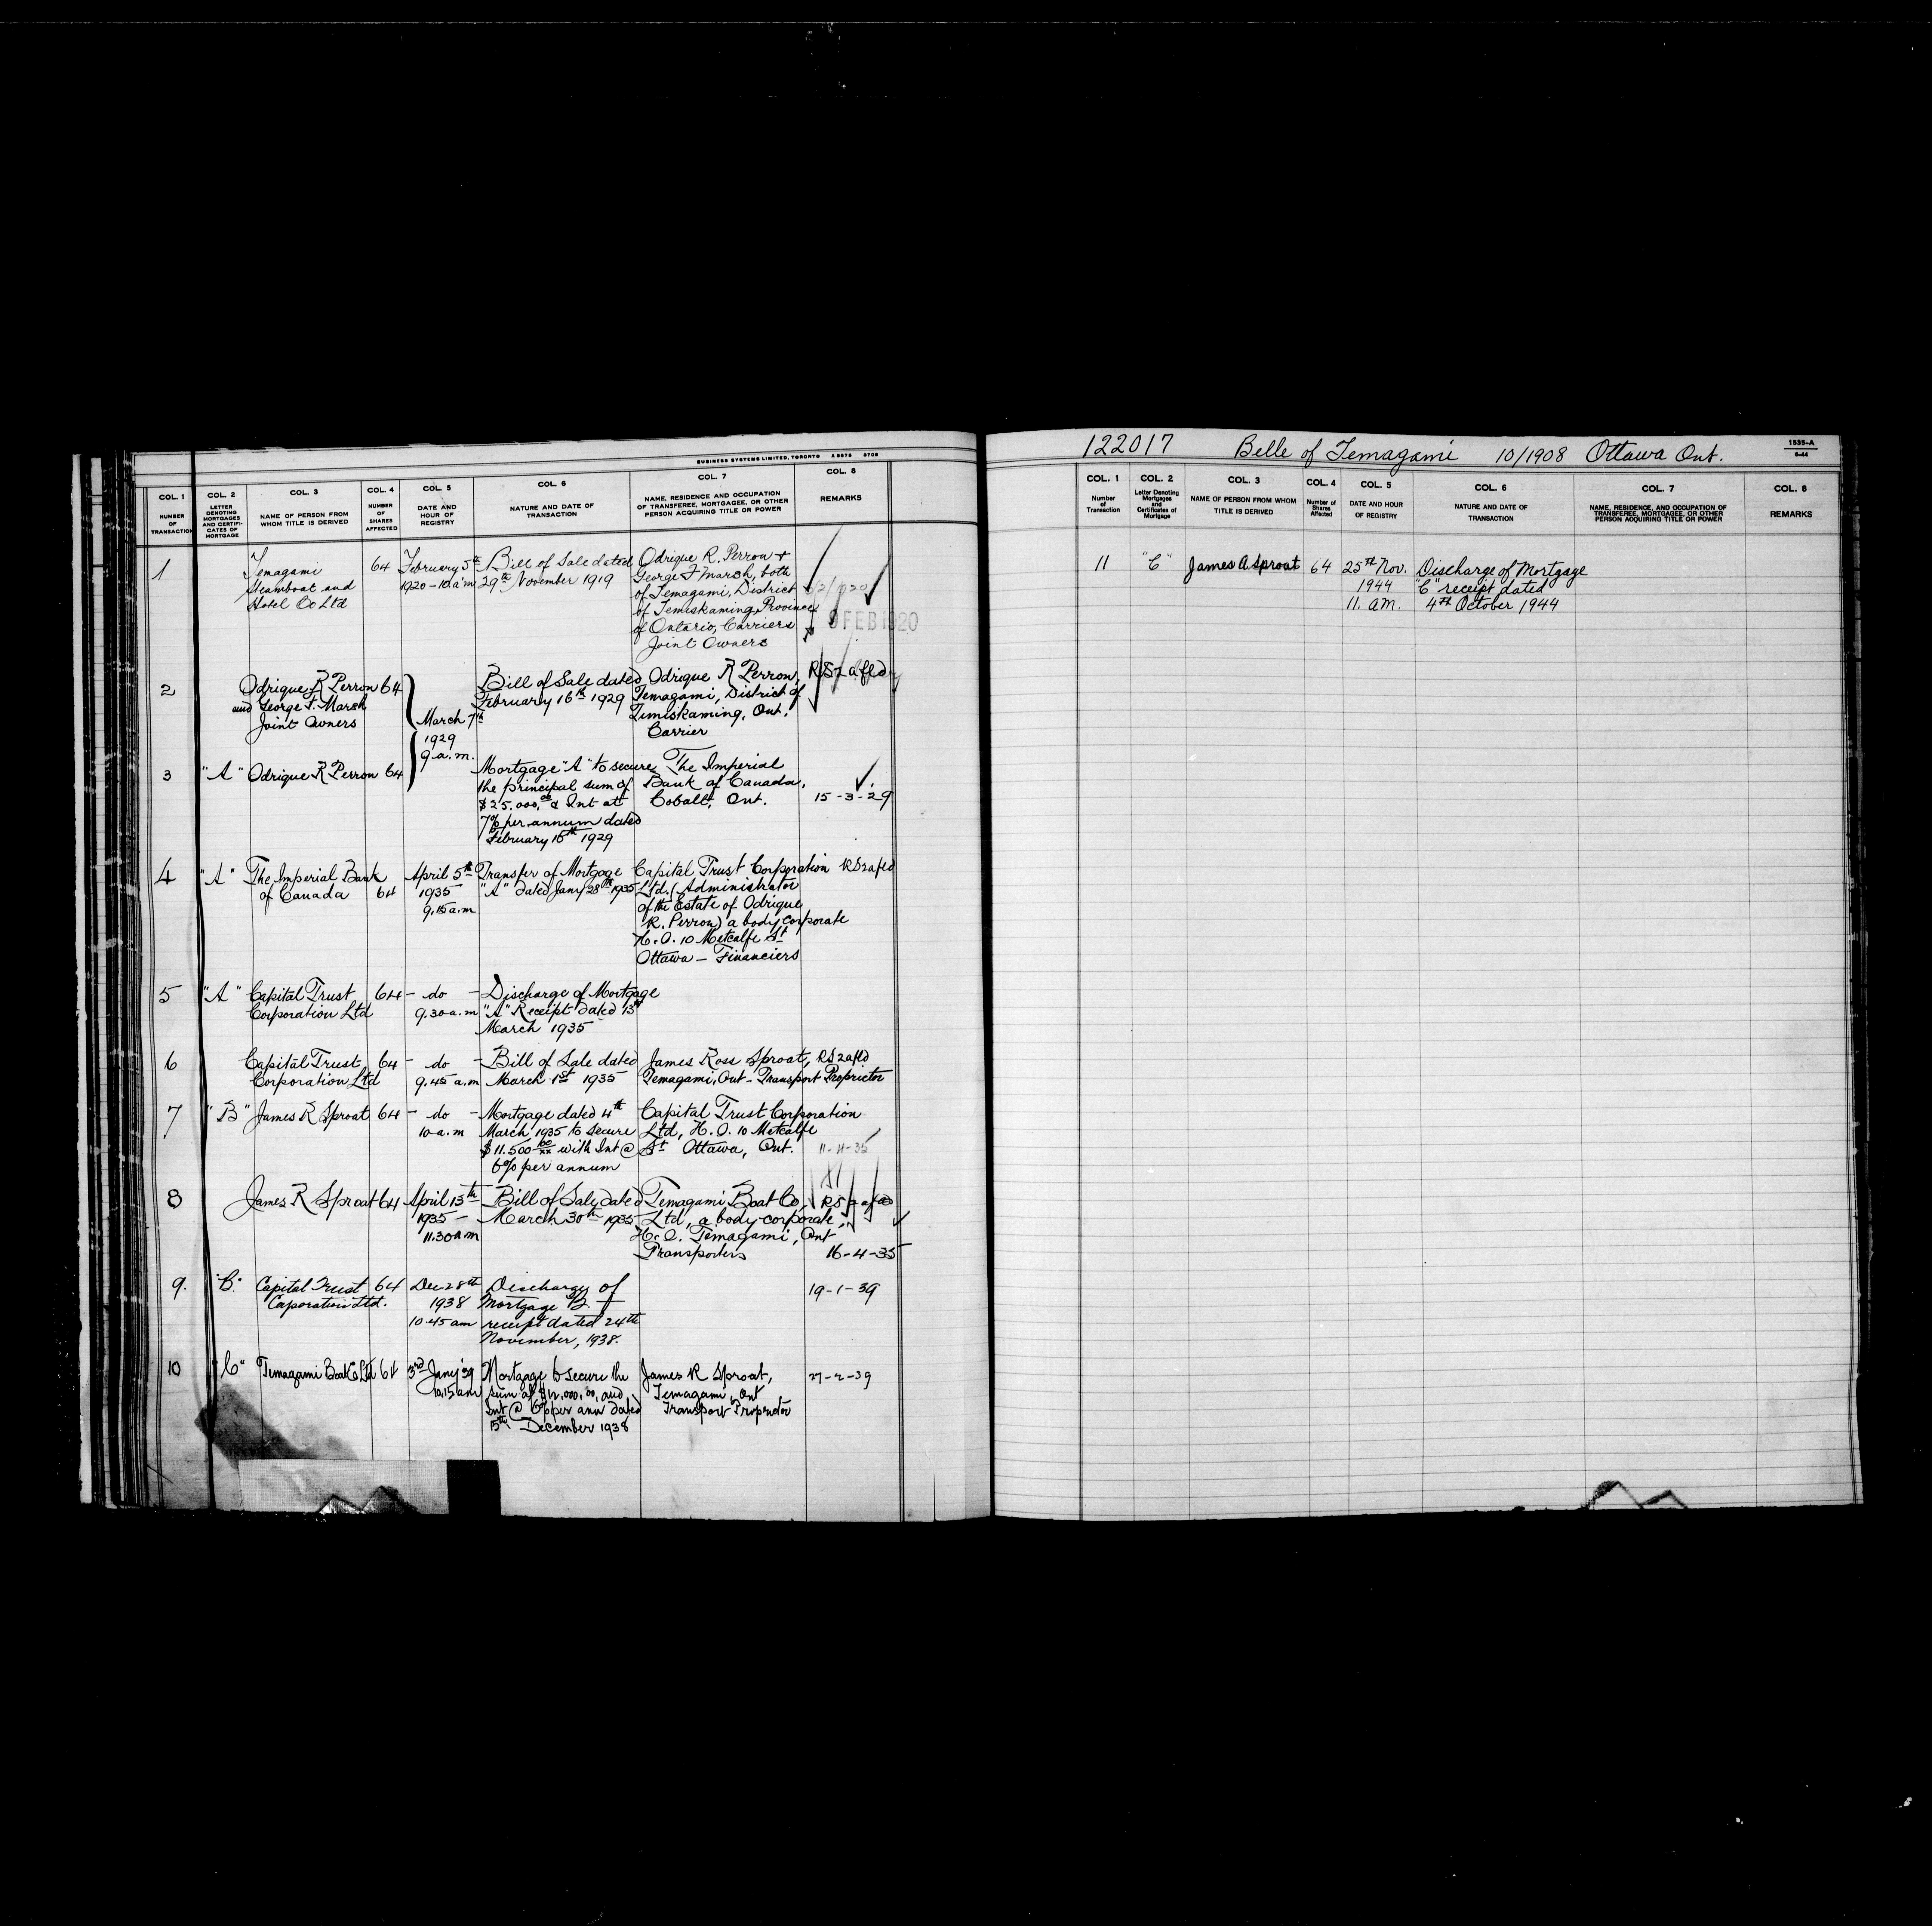 BUSINESS SYSTEMS LIMITED, TORONTO
COL. 1 COL. 2 COL. 3 COL. 4 COL. 5 COL. 6 COL. 7 COL. 8
NUMBER OF TRANSACTION
LETTER DENOTING MORTGAGES AND CERTIFI-CATES OF MORTGAGE
NAME OF PERSON FROM WHOM TITLE IS DERIVED
NUMBER OF SHARES AFFECTED
DATE AND HOUR OF REGISTRY
NATURE AND DATE OF TRANSACTION
NAME, RESIDENCE AND OCCUPATION OF TRANSFEREE, MORTGAGEE, OR OTHER PERSON ACQUIRING TITLE OR POWER
REMARKS
1
Temagami
Steamboat and
Hotel Co Ltd
64
February 5th
1920 - 10 a.m
Bill of Sale dated
29th November 1919
Odrique R. Perron +
George F March, both
of Temagami, District
of Temiskaming, Province
of Ontario, Carriers
Joint Owners
9 FEB 1920
2
Odrique R Perron
and George F. March
Joint Owners
64
March 7th
1929
9 a.m.
Bill of Sale dated
February 16th 1929
Odrique R Perron,
Temagami, District of
Timiskaming, Ont.
Carrier
3
"A"
Odrique R Perron
64
Mortgage "A" to secure
the principal sum of
$25.000,00 & Int at
7% per annum dated
February 16th 1929
The Imperial
Bank of Canada,
Cobalt, Ont.
15-3-29
4
"A"
The Imperial Bank
of Canada
64
April 5th
1935
9.15 a.m
Transfer of Mortgage
"A" dated Jany 28th 1935
Capital Trust Corporation
Ltd. (Administrator
of the Estate of Odrique
R. Perron) a body corporate
H.O. 10 Metcalfe St
Ottawa - Financiers
RS2afld
5
"A"
Capital Trust
Corporation Ltd
64
- do -
9.30 a.m
Discharge of Mortgage
"A" Receipt dated 13th
March 1935
6
Capital Trust
Corporation Ltd
64
- do -
9.45 a.m
Bill of Sale dated
March 1st 1935
James Ross Sproat,
Temagami, Ont - Transport Proprietor
RS2afld
7
"B"
James R Sproat
64
- do -
10 a.m
Mortgage dated 4th
March 1935 to secure
$11.500 00/xx with Int @
6% per annum
Capital Trust Corporation
Ltd, H.O. 10 Metcalfe
St Ottawa, Ont.
11-4-35
8
James R Sproat
64
April 13th
1935 -
11.30 a m
Bill of Sale dated
March 30th 1935
Temagami Boat Co,
Ltd, a body corporate,
H.O. Temagami, Ont
Transporters
16-4-35
9.
"B."
Capital Trust
Corporation Ltd.
64
Dec. 28th
1938
10.45 am
Discharge of
Mortgage "B"
receipt dated 24th
November, 1938.
19-1-39
10
"C"
Temagami Boat Co Ltd
64
3rd Jany '39
10.15 am
Mortgage to secure the
sum of $12,000.00, and
Int @ 6% per ann dated
15th December 1938
James R Sproat,
Temagami, Ont
Transport Proprietor
27-2-39
122017 Belle of Temagami 10/1908 Ottawa Ont.
1535-A
6-44
COL. 1 COL. 2 COL. 3 COL. 4 COL. 5 COL. 6 COL. 7 COL. 8
Number of Transaction
Letter Denoting Mortgages and Certificates of Mortgage
NAME OF PERSON FROM WHOM TITLE IS DERIVED
Number of Shares Affected
DATE AND HOUR OF REGISTRY
NATURE AND DATE OF TRANSACTION
NAME, RESIDENCE, AND OCCUPATION OF TRANSFEREE, MORTGAGEE, OR OTHER PERSON ACQUIRING TITLE OR POWER
REMARKS
11
"C"
James A Sproat
64
25th Nov.
1944
11. am.
Discharge of Mortgage
"C" receipt dated
4th October 1944